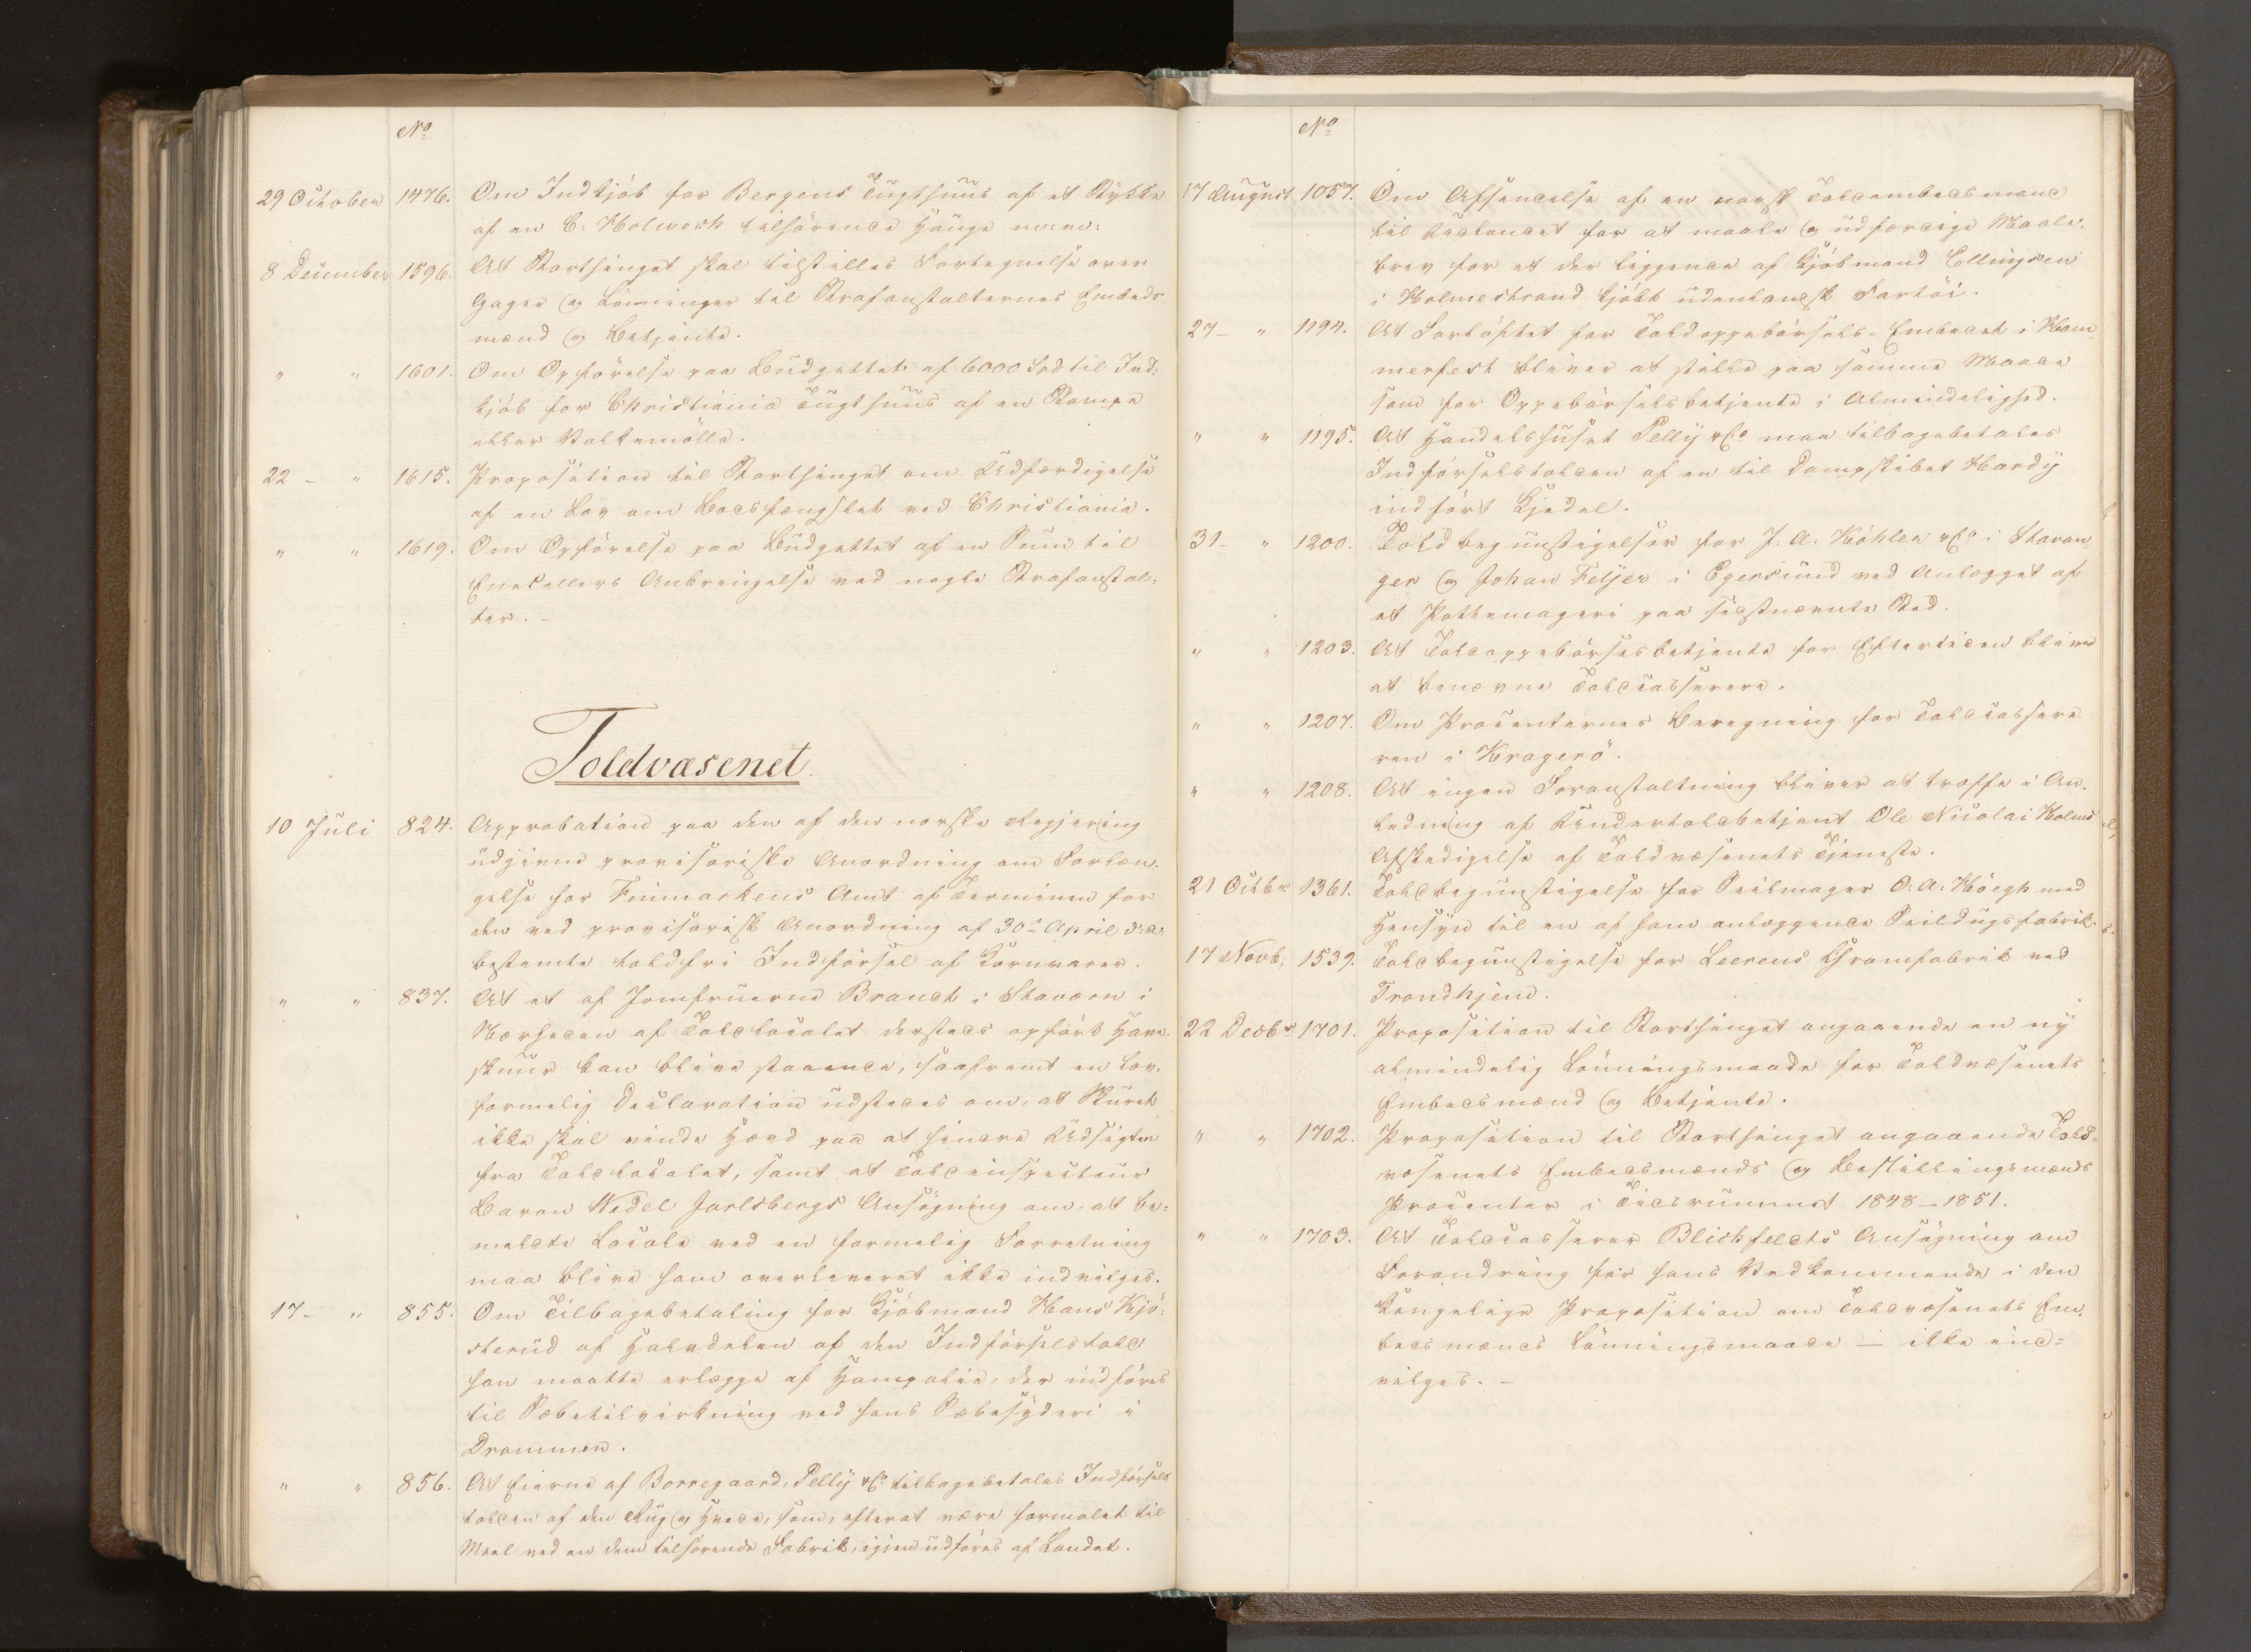 No
29 October 1476. Om Indkjöb for Bergens Tugthuus af et Stykke
af en C. Holwech tilhörende Hauge m: m:
8 December 1596. At Storthinget skal tilstilles Fortegnelse over
Gager og Lönninger til Strafanstalternes Embeds
mænd og Betjente.
" " 1601. Om Opförelse paa Budgettet af 6000 Spd til Ind=
kjöb for Christiania Tugthuus af en Stampe
eller Valkemölle.
22 - " 1615. Proposition til Storthinget om Udfærdigelse
af en Lov om Bodsfængslet ved Christiania.
" " 1619. Om Opförelse paa Budgettet af en Sum til
Enecellers Anbringelse ved nogle Strafanstal=
ter. -
Toldvæsenet.
10 Juli 824. Approbation paa den af den norske Regjering
udgivne provisoriske Anordning om Forlæn=
gelse for Finmarkens Amt af Terminen for
den ved provisorisk Anordning af 30te April d: A:
bestemte toldfri Indförsel af Kornvarer.
" " 837. At et af Jomfruerne Brandt i Staværn i
Nærheden af Toldlocalet dersteds opfört Have=
skuur kan blive staaende, saafremt en lov=
formelig Declaration udstedes om, at Skuret
ikke skal vinde Hævd paa at hindre Udsigten
fra Toldlocalet, samt at Toldinspecteur
Baron Wedel Jarlsbergs Ansögning om, at be=
meldte Locale ved en formelig Forretning
maa blive ham overleveret ikke indvilges.
17 - " 855. Om Tilbagebetaling for Kjöbmand Hans Kjö=
sterud af Halvdelen af den Indförselstold
han maatte erlægge af Hampolie, der indföres
til Sæbetilvirkning ved hans Sæbesyderi i
Drammen.
" " 856. At Eierne af Borregaard, Pelly & Co tilbagebetales Indförsels
tolden af den Rug og Hvede, som, efterat være formalet til
Meel ved en dem tilhörende Fabrik, igjen udföres af Landet.
No
17 August 1057. Om Afsendelse af en norsk Toldembedsmand
til Udlandet for at maale og udfærdige Maale=
brev for et der liggende af Kjöbmand Ellingsen
i Holmestrand kjöbt udenlandsk Fartöi.
27 - " 1194. At Forlöftet for Toldoppebörsels-Embedet i Ham=
merfest bliver at stille paa samme Maade
som for Oppebörselsbetjente i Almindelighed.
" " 1195. At Handelshuset Pelly & Co maa tilbagebetales
Indförselstolden af en til Dampskibet Hardy
indfört Kjedel.
31 - " 1200. Toldbegunstigelser for J. A. Köhler & Co i Stavan
ger og Johan Feyer i Egersund ved Anlægget af
et Pottemageri paa sidstnævnte Sted.
" " 1203. At Toldoppebörselsbetjente for Eftertiden blive
at benævne Toldcasserere.
" " 1207. Om Procenternes Beregning for Toldcassere
ren i Kragerö.
" " 1208. At ingen Foranstaltning bliver at træffe i An=
ledning af Undertoldbetjent Ole Nicolai Holms
Afskedigelse af Toldvæsenets Tjeneste.
21 Octbr 1361. Toldbegunstigelse for Seilmager O. A. Höegh med
Hensyn til en af ham anlæggende Seildugsfabrik.
17 Novb. 1539. Toldbegunstigelse for Leerens Chromfabrik ved
Trondhjem.
22 Decbr 1701. Proposition til Storthinget angaaende en ny
almindelig Lönningsmaade for Toldvæsenets
Embedsmænd og Betjente.
" " 1702. Proposition til Storthinget angaaende Told=
væsenets Embedsmænds og Bestillingsmænds
Procenter i Tidsrummet 1848-1851.
" " 1703. At Toldcasserer Blichfeldts Ansögning om
Forandring for hans Vedkommende i den
Kongelige Proposition om Toldvæsenets Em=
bedsmænds Lönningsmaade - ikke ind=
vilges. -